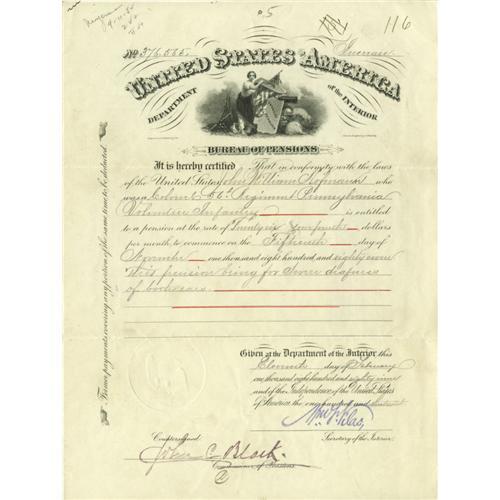 5
116
No 376.565.
Increase
UNITED STATES OF AMERICA
DEPARTMENT of the INTERIOR
BUREAU OF PENSIONS
It is hereby certified That in conformity with the laws
of the United States John William Hofmann who
was a Colonel 56th Regiment Pennsylvania
Volunteer Infantry is entitled
to a pension at the rate of dollars
per month, to commence on the Fifteenth day of
November one thousand eight hundred and eighty seven
This pension being for severe deafness
of both ears.
Former payments covering any portion of the same time to be deducted.
Given at the Department of the Interior this
Eleventh day of February
one thousand eight hundred and eighty nine
and of the Independence of the United States
of America the one hundred and thirteenth
Wm F Vilas,
Countersigned Secretary of the Interior.
John C. Black
Commissioner of Pensions